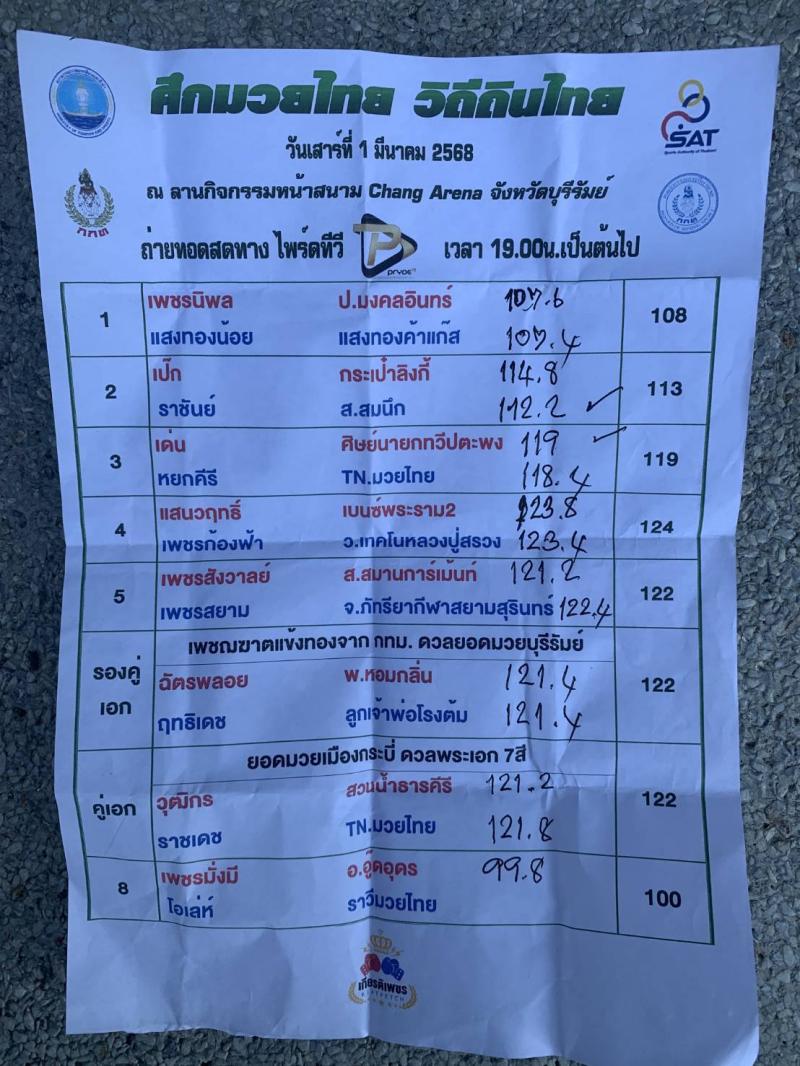 ศึกมวยไทย วิถีถิ่นไทย
SAT
Sports Authority of Thailand
วันเสาร์ที่ 1 มีนาคม 2568
ณ ลานกิจกรรมหน้าสนาม Chang Arena จังหวัดบุรีรัมย์
กกท
ถ่ายทอดสดทาง ไพร์ดทีวี เวลา 19.00น.เป็นต้นไป
1 เพชรนิพล ป.มงคลอินทร์ 107.6 108
แสงทองน้อย แสงทองค้าแก๊ส 107.4
2 เป๊ก กระเป๋าลิงกี้ 114.8 113
ราชันย์ ส.สมนึก 112.2 ✓
3 เด่น ศิษย์นายกทวีปตะพง 119 ✓ 119
หยกคีรี TN.มวยไทย 118.4
4 แสนวฤทธิ์ เบนซ์พระราม2 123.8 124
เพชรก้องฟ้า ว.เทคโนหลวงปู่สรวง 123.4
5 เพชรสังวาลย์ ส.สมานการ์เม้นท์ 121.2 122
เพชรสยาม จ.ภัทรียากีฬาสยามสุรินทร์ 122.4
เพชฌฆาตแข้งทองจาก กทม. ดวลยอดมวยบุรีรัมย์
รองคู่เอก ฉัตรพลอย พ.หอมกลิ่น 121.4 122
ฤทธิเดช ลูกเจ้าพ่อโรงต้ม 121.4
ยอดมวยเมืองกระบี่ ดวลพระเอก 7สี
คู่เอก วุฒิกร สวนน้ำธารคีรี 121.2 122
ราชเดช TN.มวยไทย 121.8
8 เพชรมั่งมี อ.อู๊ดอุดร 99.8 100
โอเล่ห์ ราวีมวยไทย
เกียรติเพชร